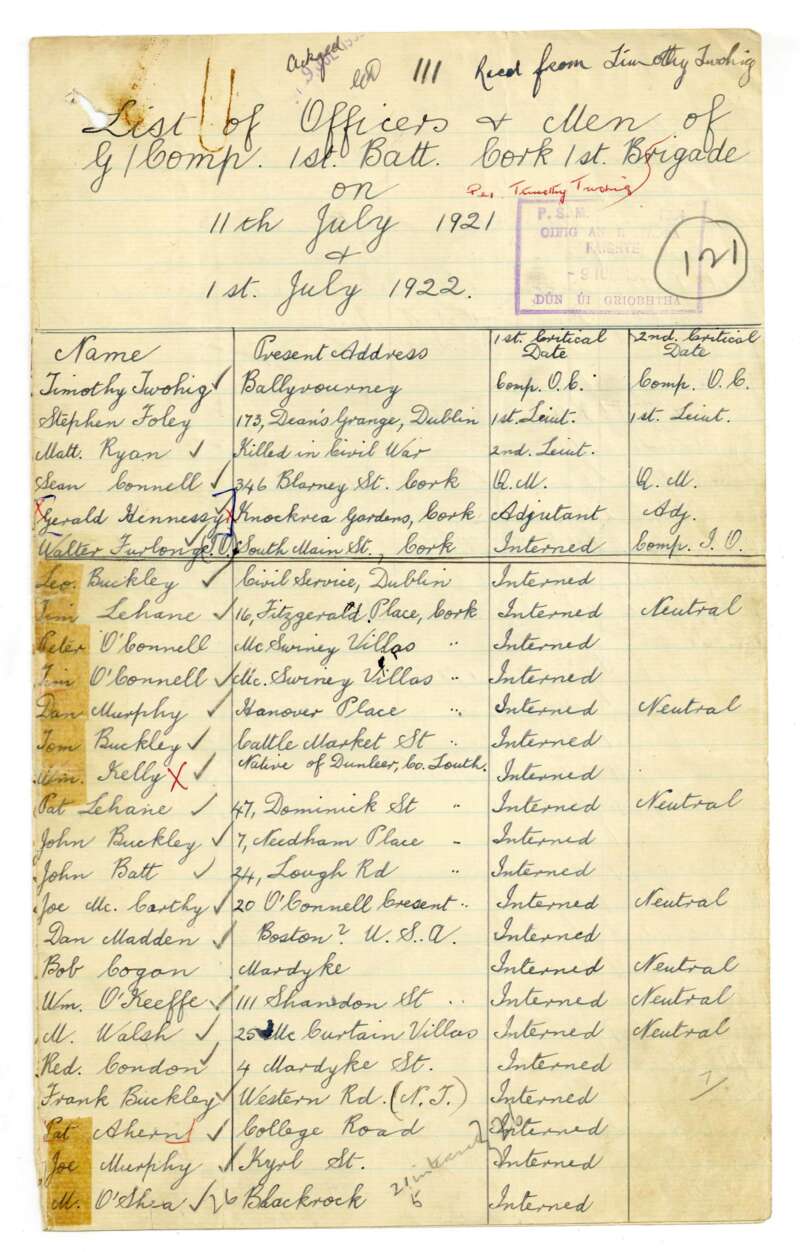 Ackged
111 Recd from Timothy Twohig
List of Officers & Men of
G/Comp. 1st. Batt. Cork 1st. Brigade
Per. Timothy Twohig
on
11th July 1921
&
1st. July 1922.
P. S. M.
OIFIG AN
RAISTE
-9
DÚN UÍ GRIOBHTHA
121
Name Present Address 1st. Critical Date 2nd. Critical Date
Timothy Twohig ✓ Ballyvourney Comp. O.C. Comp. O.C.
Stephen Foley 173, Dean's Grange, Dublin 1st. Leiut. 1st. Leiut.
Matt. Ryan ✓ Killed in Civil War 2nd. Leiut.
Sean Connell ✓ 346 Blarney St. Cork Q.M. Q.M.
Gerald Hennessy Knockrea Gardens, Cork Adjutant Adj.
Walter Furlong (I.O.) South Main St., Cork Interned Comp. I.O.
Leo. Buckley ✓ Civil Service, Dublin Interned
Tim Lehane ✓ 16, Fitzgerald Place, Cork Interned Neutral
Peter O'Connell Mc Swiney Villas " Interned
Tim O'Connell ✓ Mc. Swiney Villas " Interned
Dan Murphy ✓ Hanover Place " Interned Neutral
Tom Buckley ✓ Cattle Market St " Interned
Wm. Kelly X ✓ Native of Dunleer, Co. Louth. Interned
Pat Lehane ✓ 47, Dominick St " Interned Neutral
John Buckley ✓ 7, Needham Place " Interned
John Batt ✓ 24, Lough Rd " Interned
Joe Mc. Carthy ✓ 20 O'Connell Cresent " Interned Neutral
Dan Madden ✓ Boston? U.S.A. Interned
Bob Cogan Mardyke Interned Neutral
Wm. O'Keeffe ✓ 111 Shandon St " Interned Neutral
M. Walsh ✓ 25 Mc Curtain Villas Interned Neutral
Red. Condon ✓ 4 Mardyke St. Interned
Frank Buckley ✓ Western Rd. (N.T.) Interned
Pat Ahern ✓ College Road Interned
Joe Murphy ✓ Kyrl St. Interned
M. O'Shea ✓ 26 Blackrock Interned
21
5